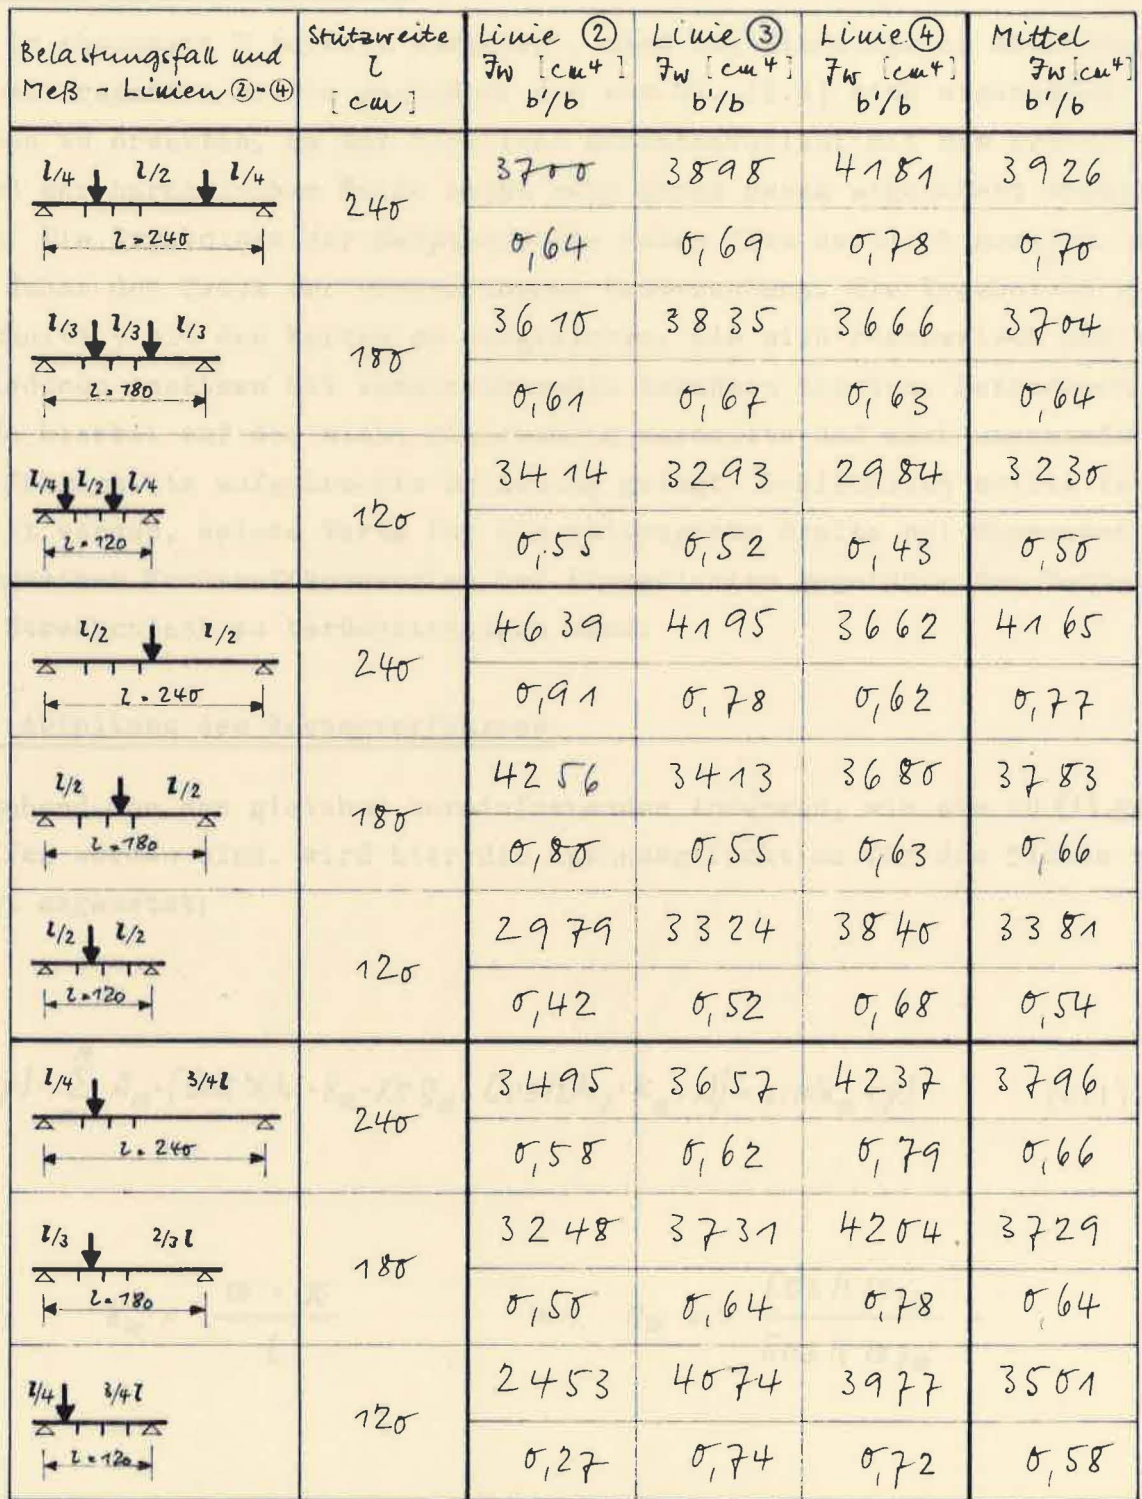 Belastungsfall und
Meß - Linien ②-④
Stützweite
l
[cm]
Linie ②
Jw [cm⁴]
b'/b
Linie ③
Jw [cm⁴]
b'/b
Linie ④
Jw [cm⁴]
b'/b
Mittel
Jw [cm⁴]
b'/b
l/4 l/2 l/4
l=240
240
3700 3898 4181 3926
0,64 0,69 0,78 0,70
l/3 l/3 l/3
l=180
180
3610 3835 3666 3704
0,61 0,67 0,63 0,64
l/4 l/2 l/4
l=120
120
3414 3293 2984 3230
0,55 0,52 0,43 0,50
l/2 l/2
l=240
240
4639 4195 3662 4165
0,91 0,78 0,62 0,77
l/2 l/2
l=180
180
4256 3413 3680 3783
0,80 0,55 0,63 0,66
l/2 l/2
l=120
120
2979 3324 3840 3381
0,42 0,52 0,68 0,54
l/4 3/4l
l=240
240
3495 3657 4237 3796
0,58 0,62 0,79 0,66
l/3 2/3l
l=180
180
3248 3731 4204 3729
0,50 0,64 0,78 0,64
l/4 3/4l
l=120
120
2453 4074 3977 3501
0,27 0,74 0,72 0,58